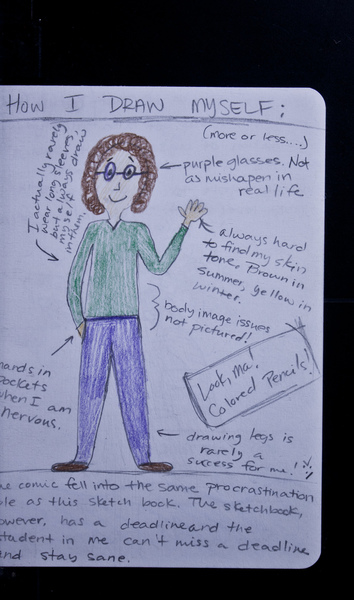 HOW I DRAW MYSELF:
(more or less....)
purple glasses. Not
as mishapen in
real life
I actually rarely
wear long sleeves,
but always draw
myself
in them.
always hard
to find my skin
tone. Brown in
summer, yellow in
winter.
body image issues
not pictured!
Look, Ma!
Colored Pencils!
hands in
pockets
when I am
nervous.
drawing legs is
rarely a
success for me!
comic fell into the same procrastination
as this sketch book. The sketchbook,
however, has a deadline and the
student in me can't miss a deadline
and stay sane.